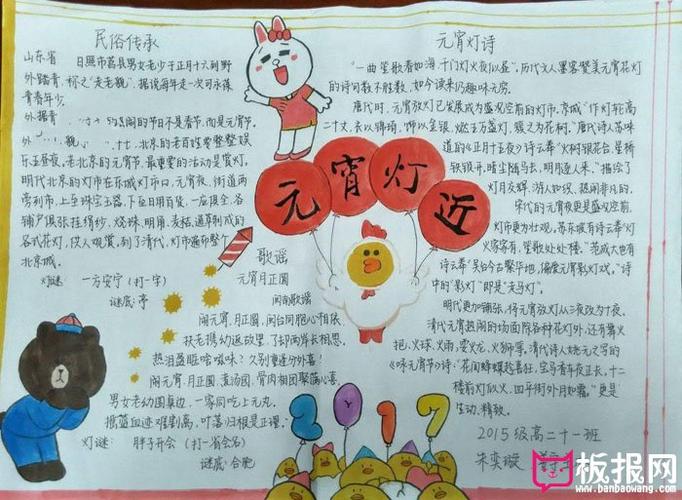 民俗传承
山东省 日照市莒县男女老少于正月十六到野
外踏青,称之"走老貌"。据说每年走一次可永葆
青春年少。
乐王昼夜。老北京的元宵节,最重要的活动是赏灯。
明代北京的灯市在东城灯市口,元宵夜,街道两
旁列市,上至珠宝玉器,下至日用百货,一应俱全。各
铺户俱张挂绢纱、烧珠、明角、麦秸、通草制成的
各式花灯,供人观赏,到了清代,灯市遍布整个
北京城。
灯谜: 一方安宁(打一字)
谜底:亭
元宵灯近
歌谣
元宵月正圆
闽南歌谣
闹元宵,月正圆,闽台同胞心相依,
扶老携幼返故里,了却两岸长相思。
热泪盈眶啥滋味?久别重逢分外喜!
闹元宵,月正圆,煮汤圆,骨肉相团聚满心喜,
男女老幼围桌边,一家同吃上元丸。
摇篮血迹难割离,叶落归根是正理。
灯谜: 胖子开会(打一省会名)
谜底:合肥
元宵灯诗
"一曲笙歌春如海,千门灯火夜似昼"。历代文人墨客赞美元宵花灯
的诗句数不胜数,如今读来仍趣味无穷。
唐代时,元宵放灯已发展成为盛况空前的灯市,京城"作灯轮高
二十丈,衣以锦绮,饰以金银,燃五万盏灯,簇之为花树。"唐代诗人苏味
道的《正月十五夜》诗云奉"火树银花合,星桥
铁锁开,暗尘随马去,明月逐人来。"描绘了
灯月交辉,游人如织,热闹非凡的。
宋代的元宵夜更是盛况空前,
灯市更为壮观。苏东坡有诗云奉"灯
火家家有,笙歌处处楼。"范成大也有
诗云奉"吴台今古繁华地,偏爱元宵影灯戏。"诗
中的"影灯"即是"走马灯"。
明代更加铺张,将元宵放灯从三夜改为十夜。
清代元宵热闹的场面除各种花灯外,还有舞火
把、火球、火雨,耍火龙、火狮等。清代诗人姚元之写的
《咏元宵节》诗:"花间蜂蝶趁喜狂,宝马香车夜正长,十二
楼前灯似火,四平街外月如霜。"更是
生动、精致。
2015级高二十一班
朱奕璇
2017
板报网
www.banbaowang.com